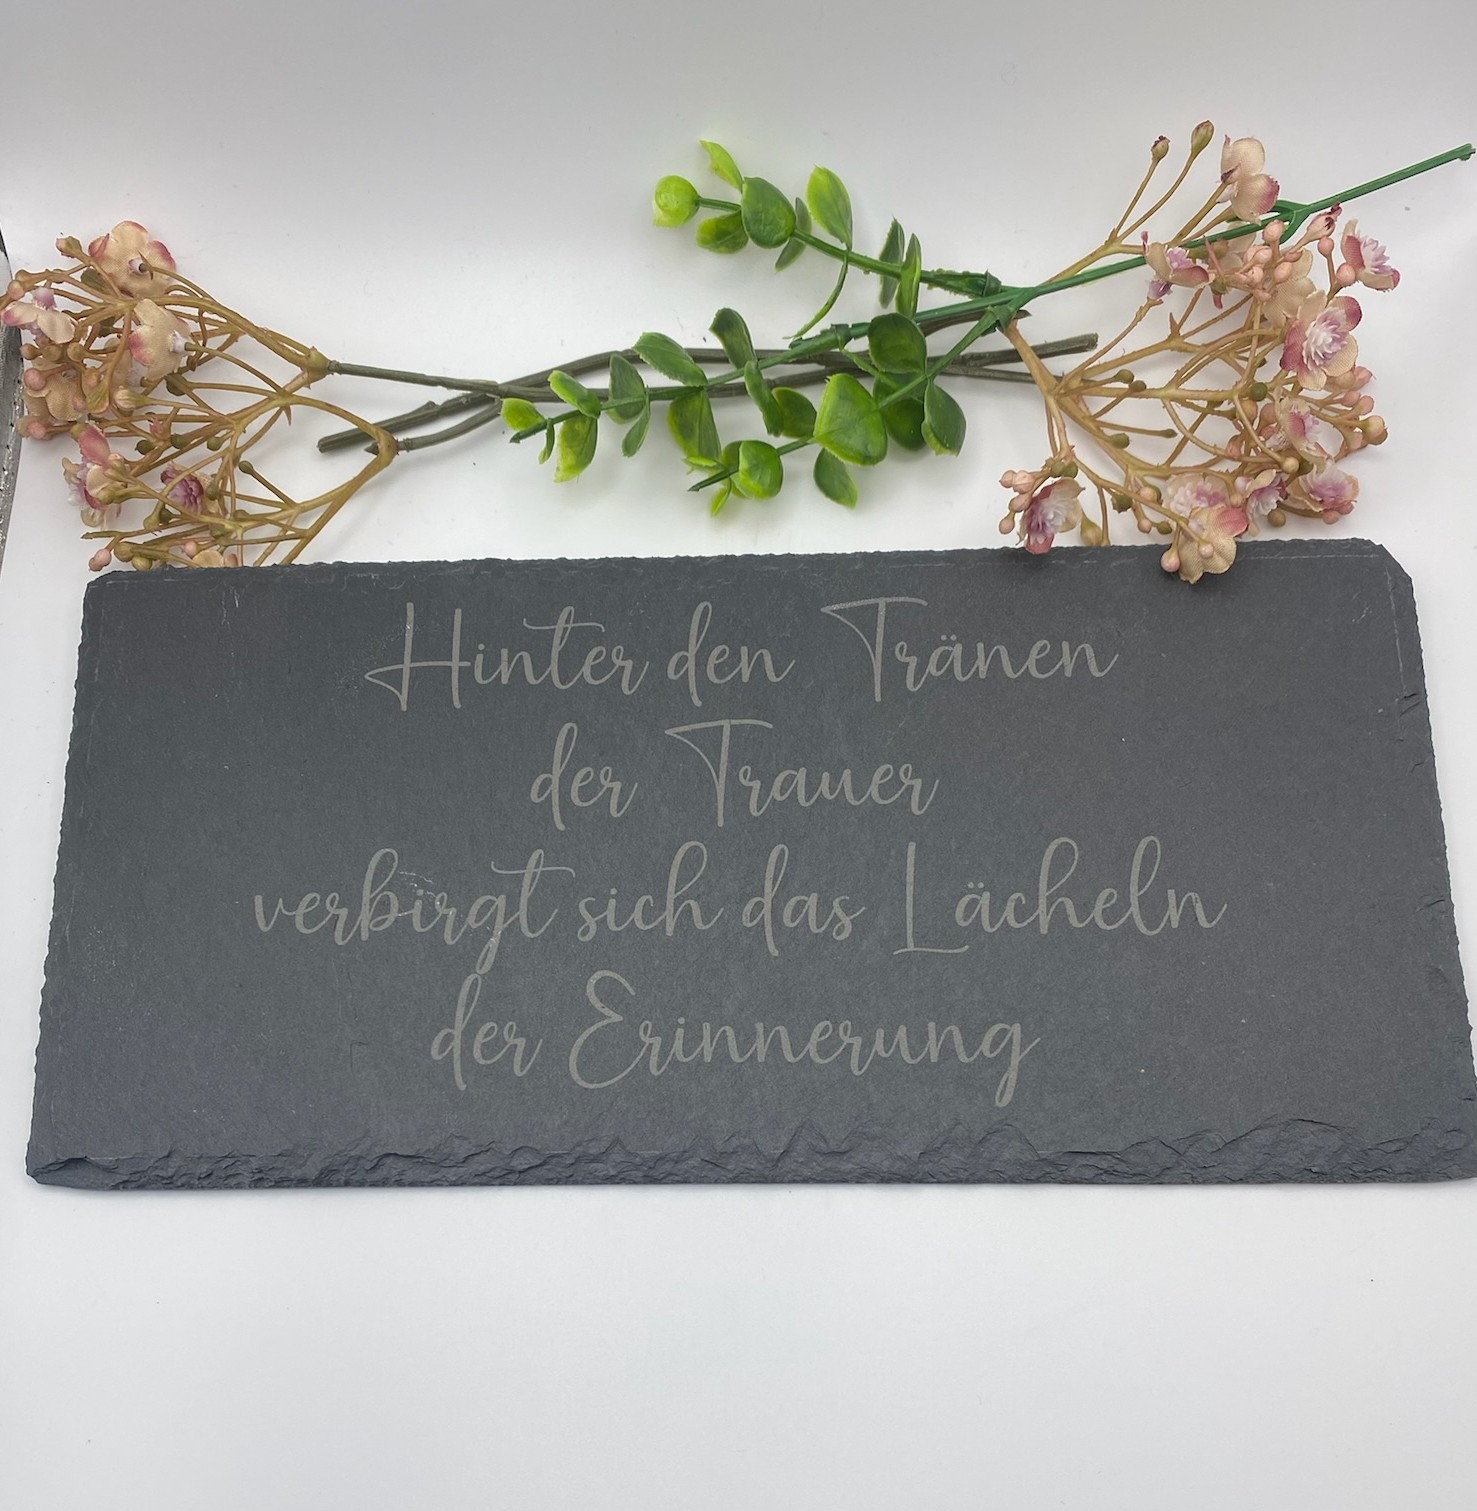 Hinter den Tränen
der Trauer
verbirgt sich das Lächeln
der Erinnerung